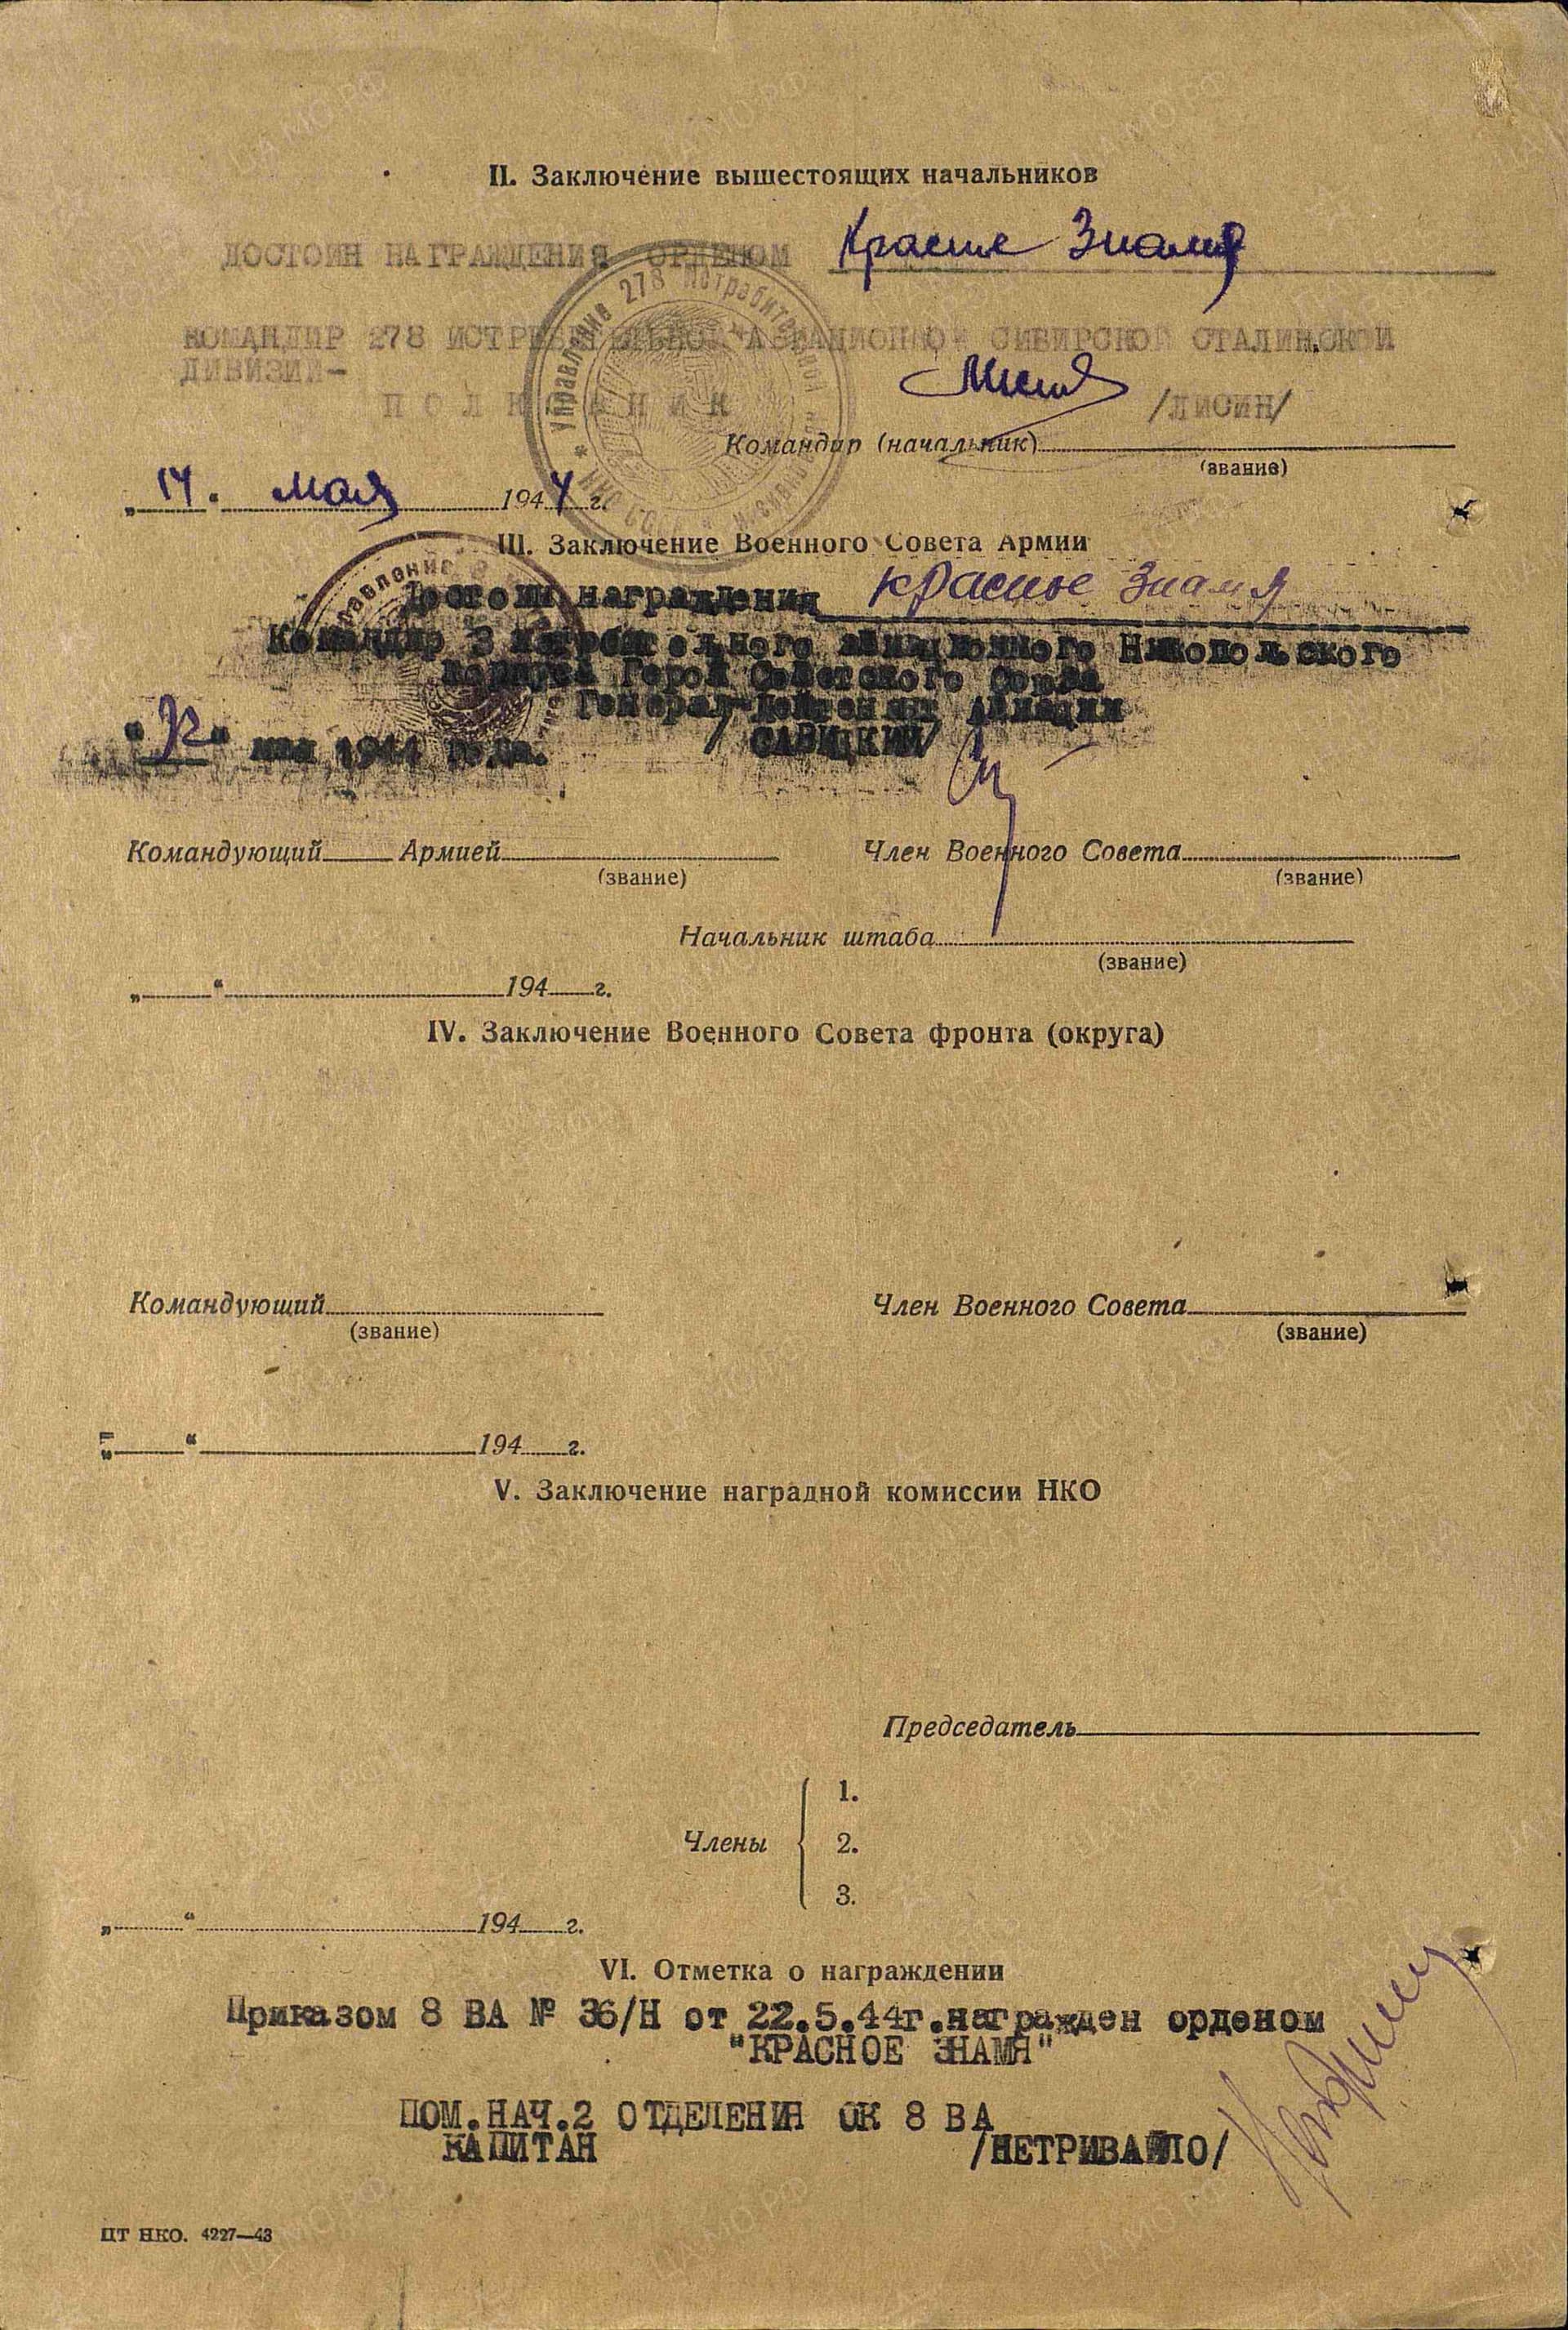 II. Заключение вышестоящих начальников
ДОСТОИН НАГРАЖДЕНИЯ ОРДЕНОМ Красное Знамя
КОМАНДИР 278 ИСТРЕБИТЕЛЬНОЙ АВИАЦИОННОЙ СИБИРСКОЙ СТАЛИНСКОЙ
ДИВИЗИИ-
ПОЛКОВНИК /ЛИСИН/
Командир (начальник)
(звание)
„14." мая 1944 г.
III. Заключение Военного Совета Армии
Достоин награждения красное знамя
Командир 3 истребительного авиационного Никопольского
корпуса Герой Советского Союза
Генерал-лейтенант авиации
" " мая 1944 года. /САВИЦКИЙ/
Командующий Армией Член Военного Совета
(звание) (звание)
Начальник штаба
(звание)
„ “ 194 г.
IV. Заключение Военного Совета фронта (округа)
Командующий Член Военного Совета
(звание) (звание)
„ “ 194 г.
V. Заключение наградной комиссии НКО
Председатель
Члены
1.
2.
3.
„ “ 194 г.
VI. Отметка о награждении
Приказом 8 ВА № 36/Н от 22.5.44г.награжден орденом
"КРАСНОЕ ЗНАМЯ"
ПОМ.НАЧ.2 ОТДЕЛЕНИЯ ОК 8 ВА
КАПИТАН /НЕТРИВАЙЛО/
ЦТ НКО. 4227—43